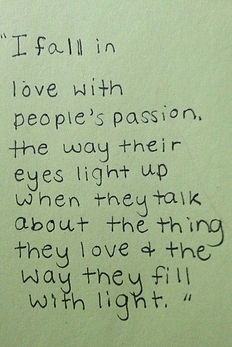 "I fall in
love with
people's passion.
the way their
eyes light up
when they talk
about the thing
they love & the
way they fill
with light. "